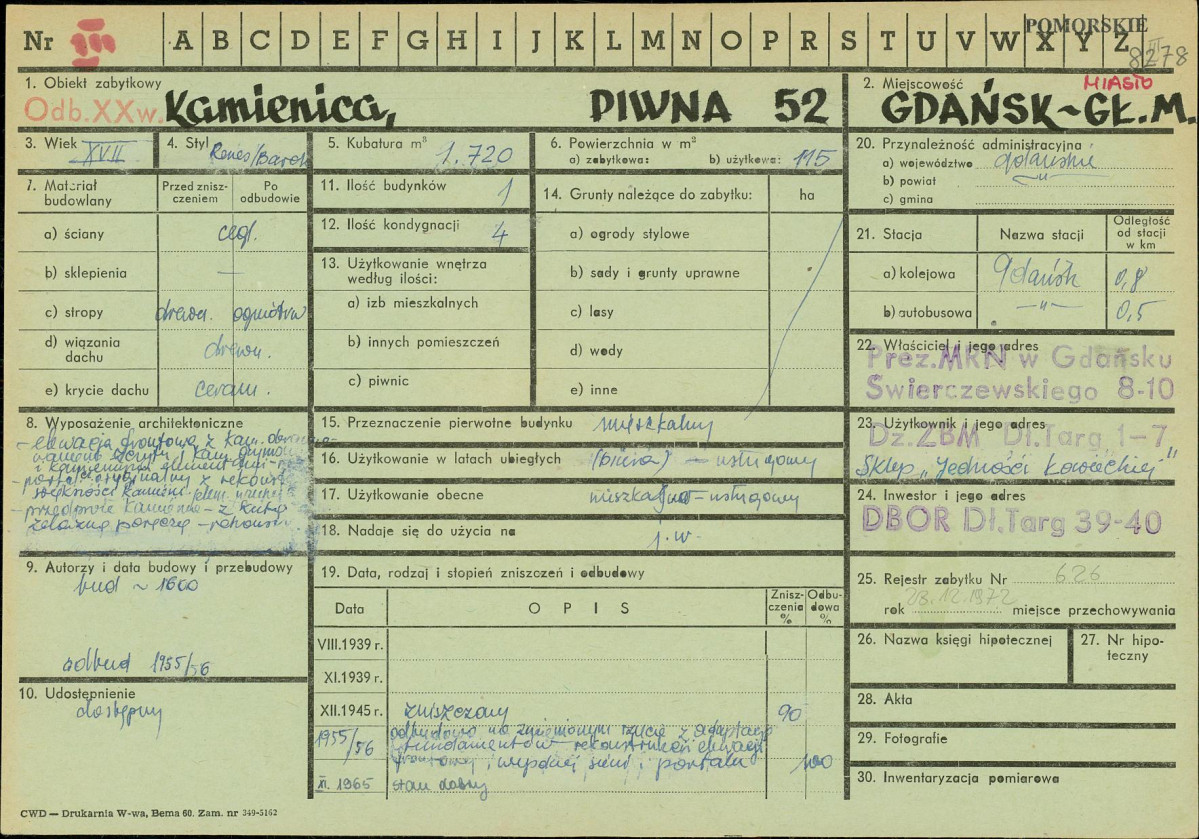 Nr III A B C D E F G H I J K L M N O P R S T U V W X Y Z
POMORSKIE
III
8278
1. Obiekt zabytkowy
Odb.XXw. Kamienica, PIWNA 52
2. Miejscowość MIASTO
GDAŃSK-GŁ.M.
3. Wiek XVII
4. Styl Renes/Barok
5. Kubatura m³ 1.720
6. Powierzchnia w m²
a) zabytkowa: b) użytkowa: 115
7. Materiał budowlany
Przed zniszczeniem
Po odbudowie
a) ściany cegl.
b) sklepienia —
c) stropy drewn. ogniotrw
d) wiązania dachu drewn.
e) krycie dachu ceram.
8. Wyposażenie architektoniczne
- elewacja frontowa z kam.
i kamiennymi elementami
- portal oryginalny z rekonstr
- przedproże kamienne - z kutą
żelazną poręczą - rekonstr
9. Autorzy i data budowy i przebudowy
bud ~ 1600
odbud 1955/56
10. Udostępnienie
dostępny
11. Ilość budynków 1
12. Ilość kondygnacji 4
13. Użytkowanie wnętrza według ilości:
a) izb mieszkalnych
b) innych pomieszczeń
c) piwnic
14. Grunty należące do zabytku: ha
a) ogrody stylowe
b) sady i grunty uprawne
c) lasy
d) wody
e) inne
15. Przeznaczenie pierwotne budynku mieszkalny
16. Użytkowanie w latach ubiegłych (biura) — usługowy
17. Użytkowanie obecne mieszkalno-usługowy
18. Nadaje się do użycia na j.w.
19. Data, rodzaj i stopień zniszczeń i odbudowy
Data
O P I S
Zniszczenia %
Odbudowa %
VIII.1939 r.
XI.1939 r.
XII.1945 r. zniszczony 90
1955/56 odbudowa na zmienionym rzucie z adaptacją
fundamentów - rekonstrukcja elewacji
frontowej, wysokiej sieni i portalu 100
XI. 1965 stan dobry
20. Przynależność administracyjna
a) województwo gdańskie
b) powiat —"—
c) gmina
21. Stacja
Nazwa stacji
Odległość od stacji w km
a) kolejowa Gdańsk 0,8
b) autobusowa —"— 0,5
22. Właściciel i jego adres
Prez.MRN w Gdańsku
Świerczewskiego 8-10
23. Użytkownik i jego adres
Dz.ZBM Dł.Targ 1-7
Sklep "Jedności Łowieckiej"
24. Inwestor i jego adres
DBOR Dł.Targ 39-40
25. Rejestr zabytku Nr 626
rok 23.12.1972 miejsce przechowywania
26. Nazwa księgi hipotecznej
27. Nr hipoteczny
28. Akta
29. Fotografie
30. Inwentaryzacja pomiarowa
CWD — Drukarnia W-wa, Bema 60. Zam. nr 349-5162